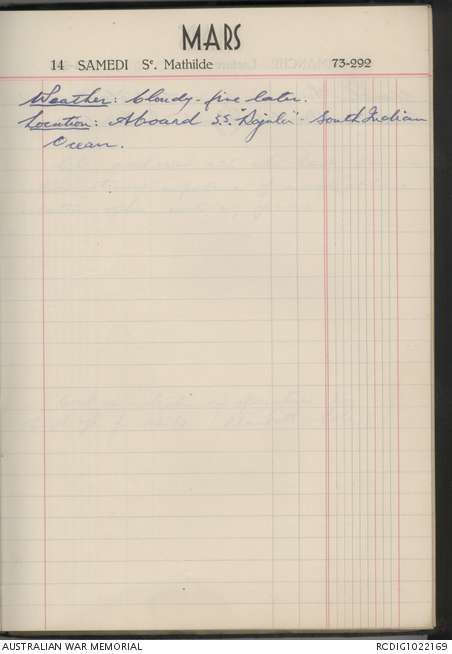 MARS
14 SAMEDI Sᵉ. Mathilde 73-292
Weather: Cloudy - fine later.
Location: Aboard S.S. "Rajula" - South Indian
Ocean.
AUSTRALIAN WAR MEMORIAL RCDIG1022169